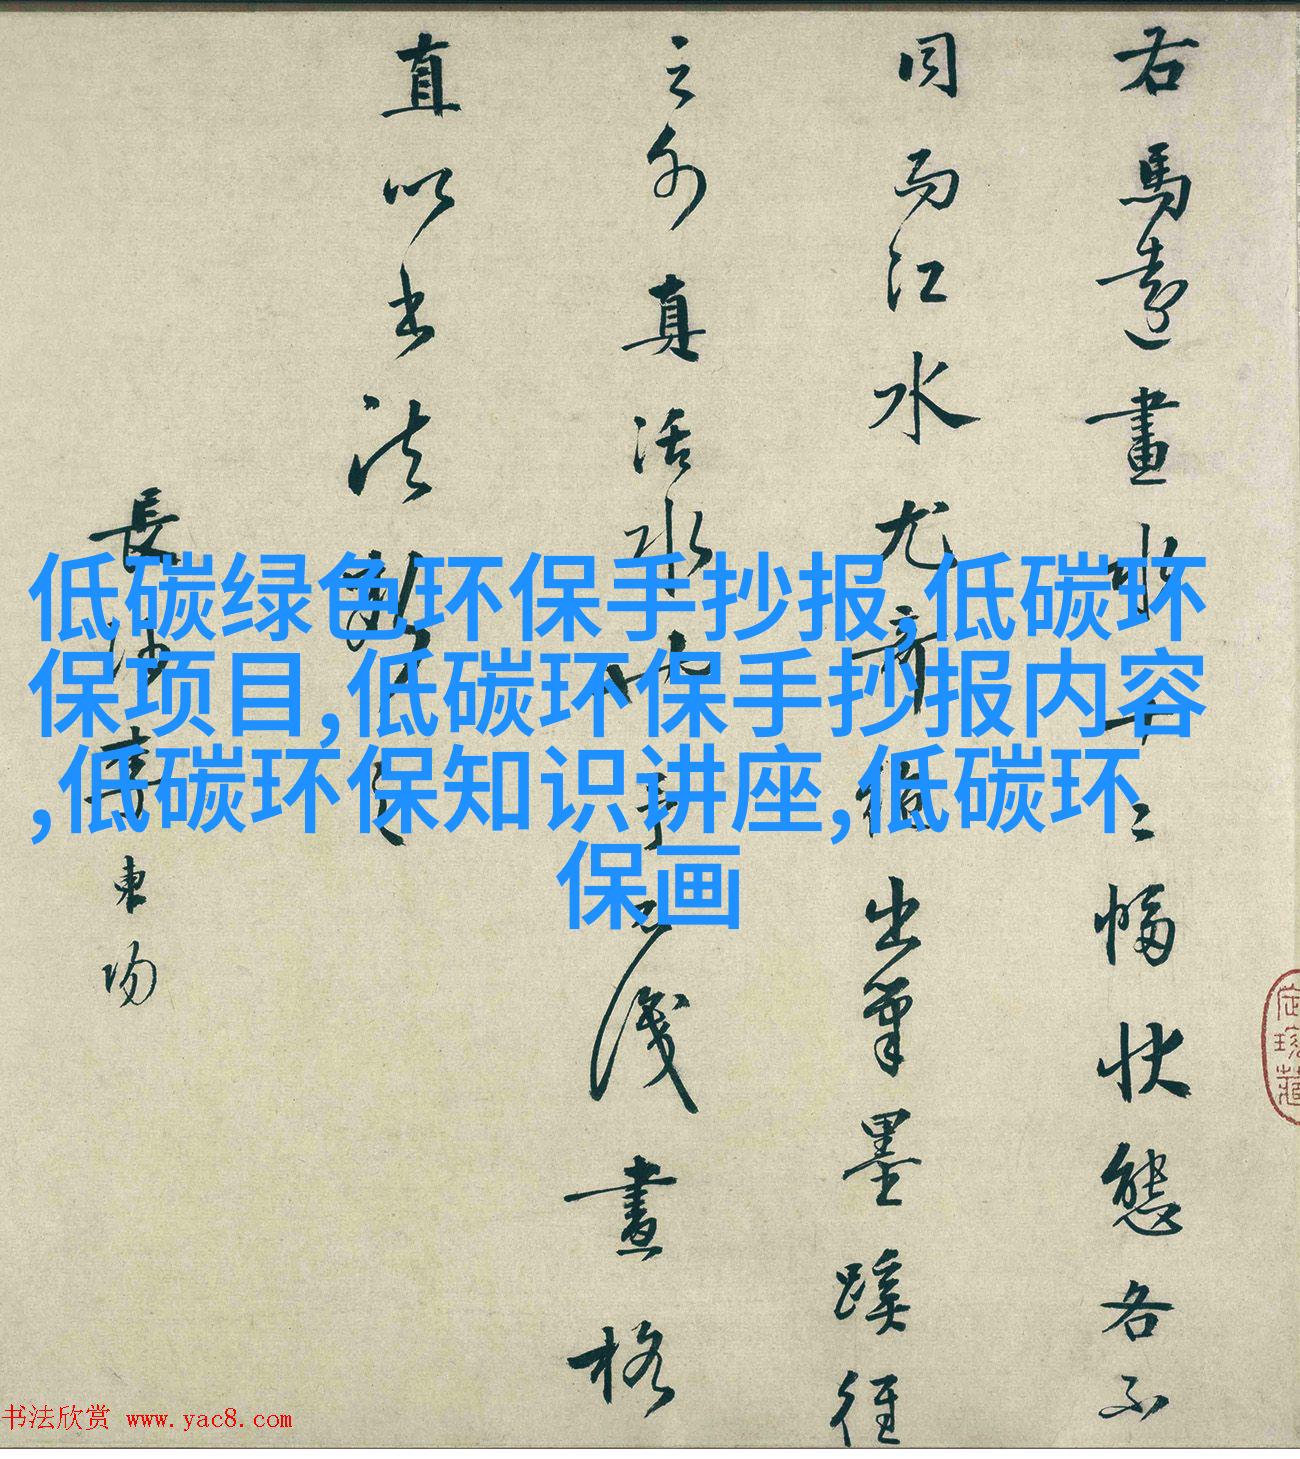 右馬遠畫水十二幅狀態各不
同而江水尤奇絕出筆墨蹊徑
之外真活水也予不識畫格
直以書法觀之
長沙李東陽
低碳绿色环保手抄报,低碳环
保项目,低碳环保手抄报内容
,低碳环保知识讲座,低碳环
保画
书法欣赏 www.yac8.com